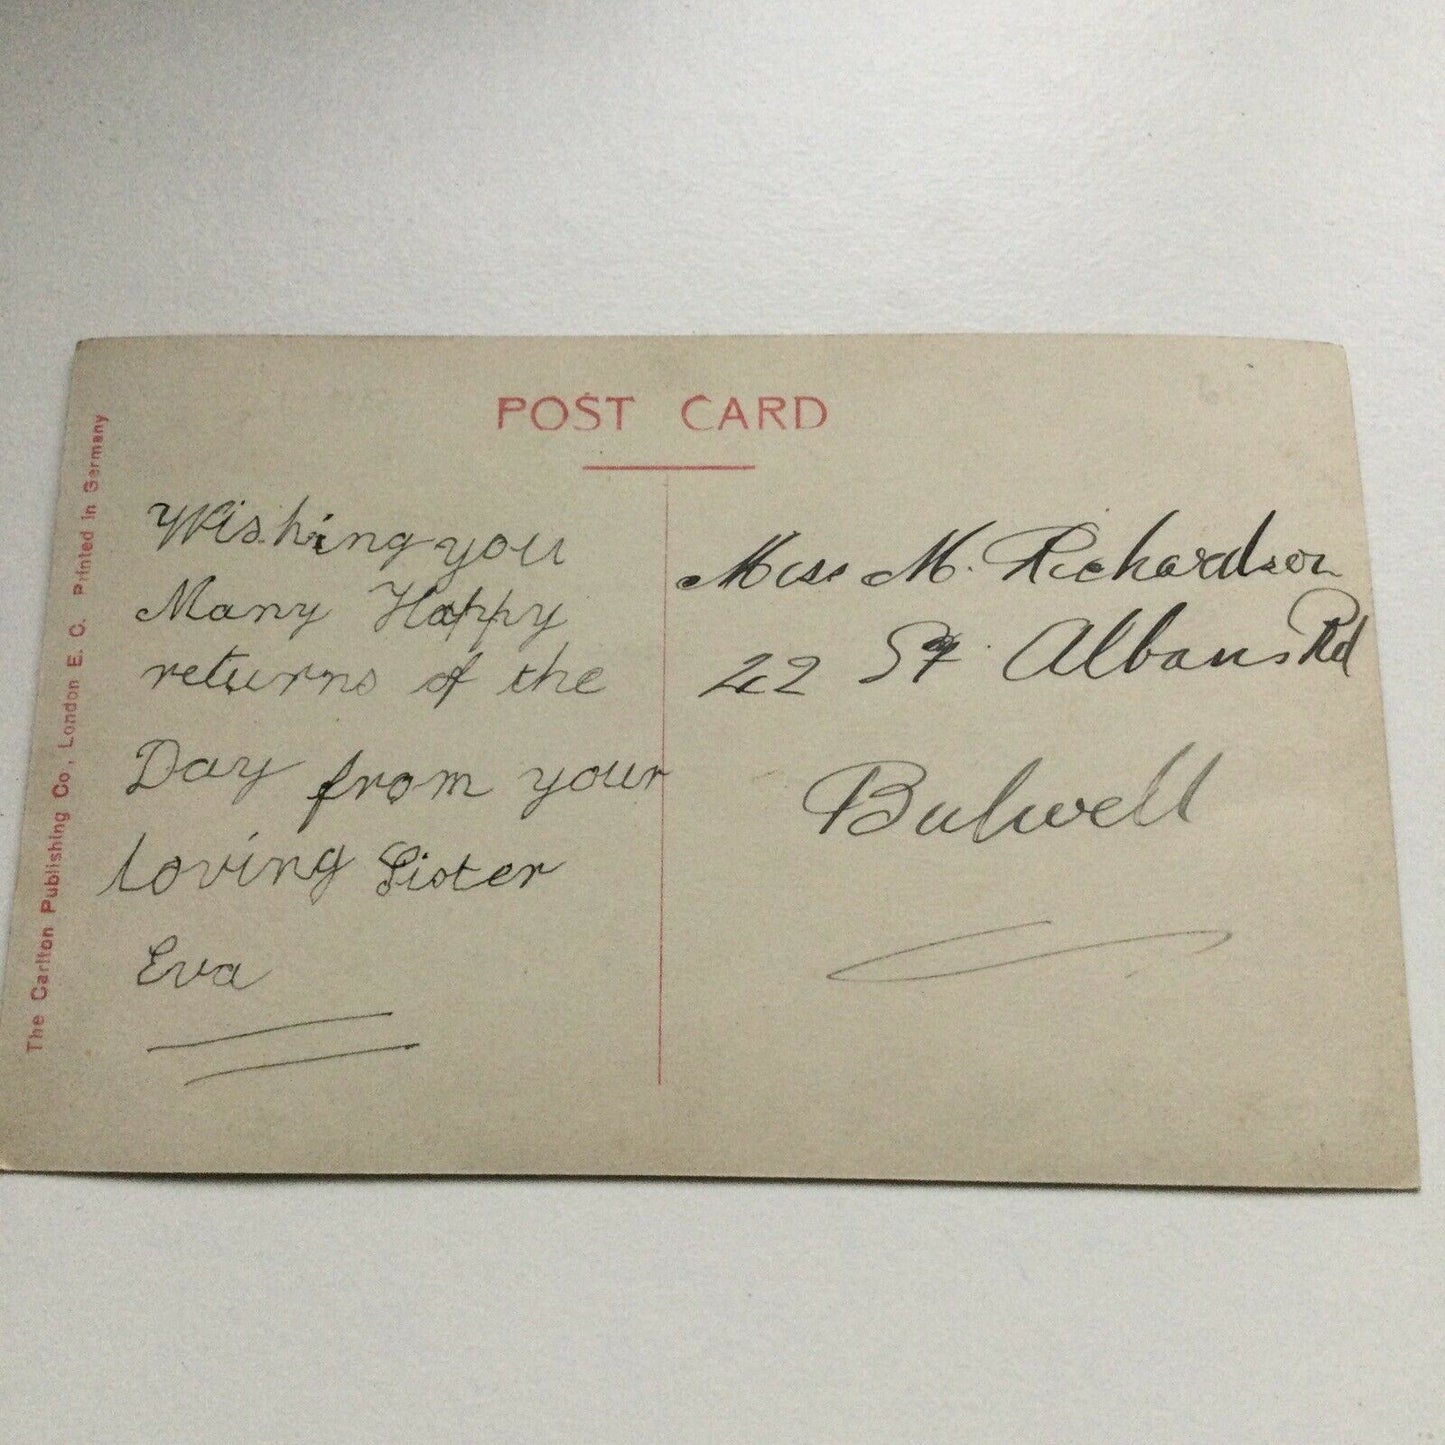 POST CARD
The Carlton Publishing Co., London E. C. Printed in Germany
Wishing you
Many Happy
returns of the
Day from your
loving Sister
Eva
Miss M. Richardson
22 St. Albans Rd
Bulwell